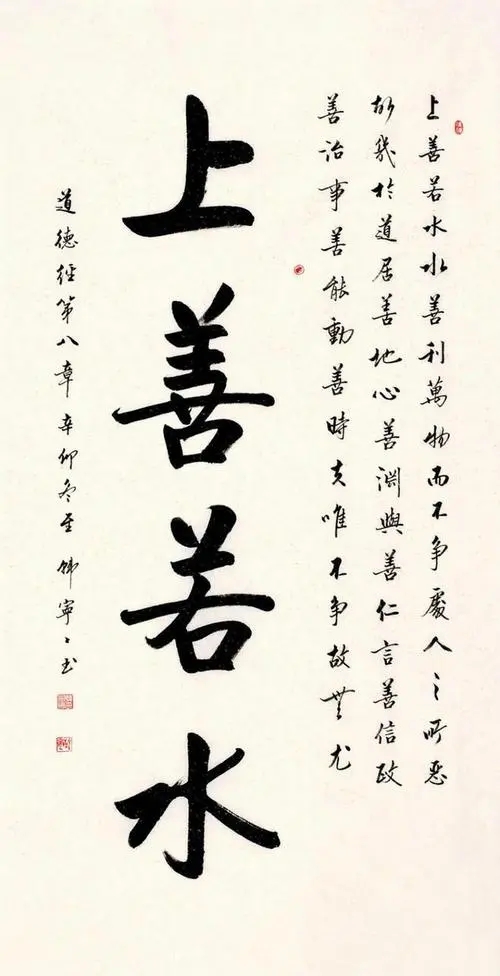 上善若水水善利萬物而不争處人之所惡
故幾於道居善地心善淵與善仁言善信政
善治事善能動善時夫唯不争故無尤
上善若水
道德經第八章辛卯冬至韩寧〻书